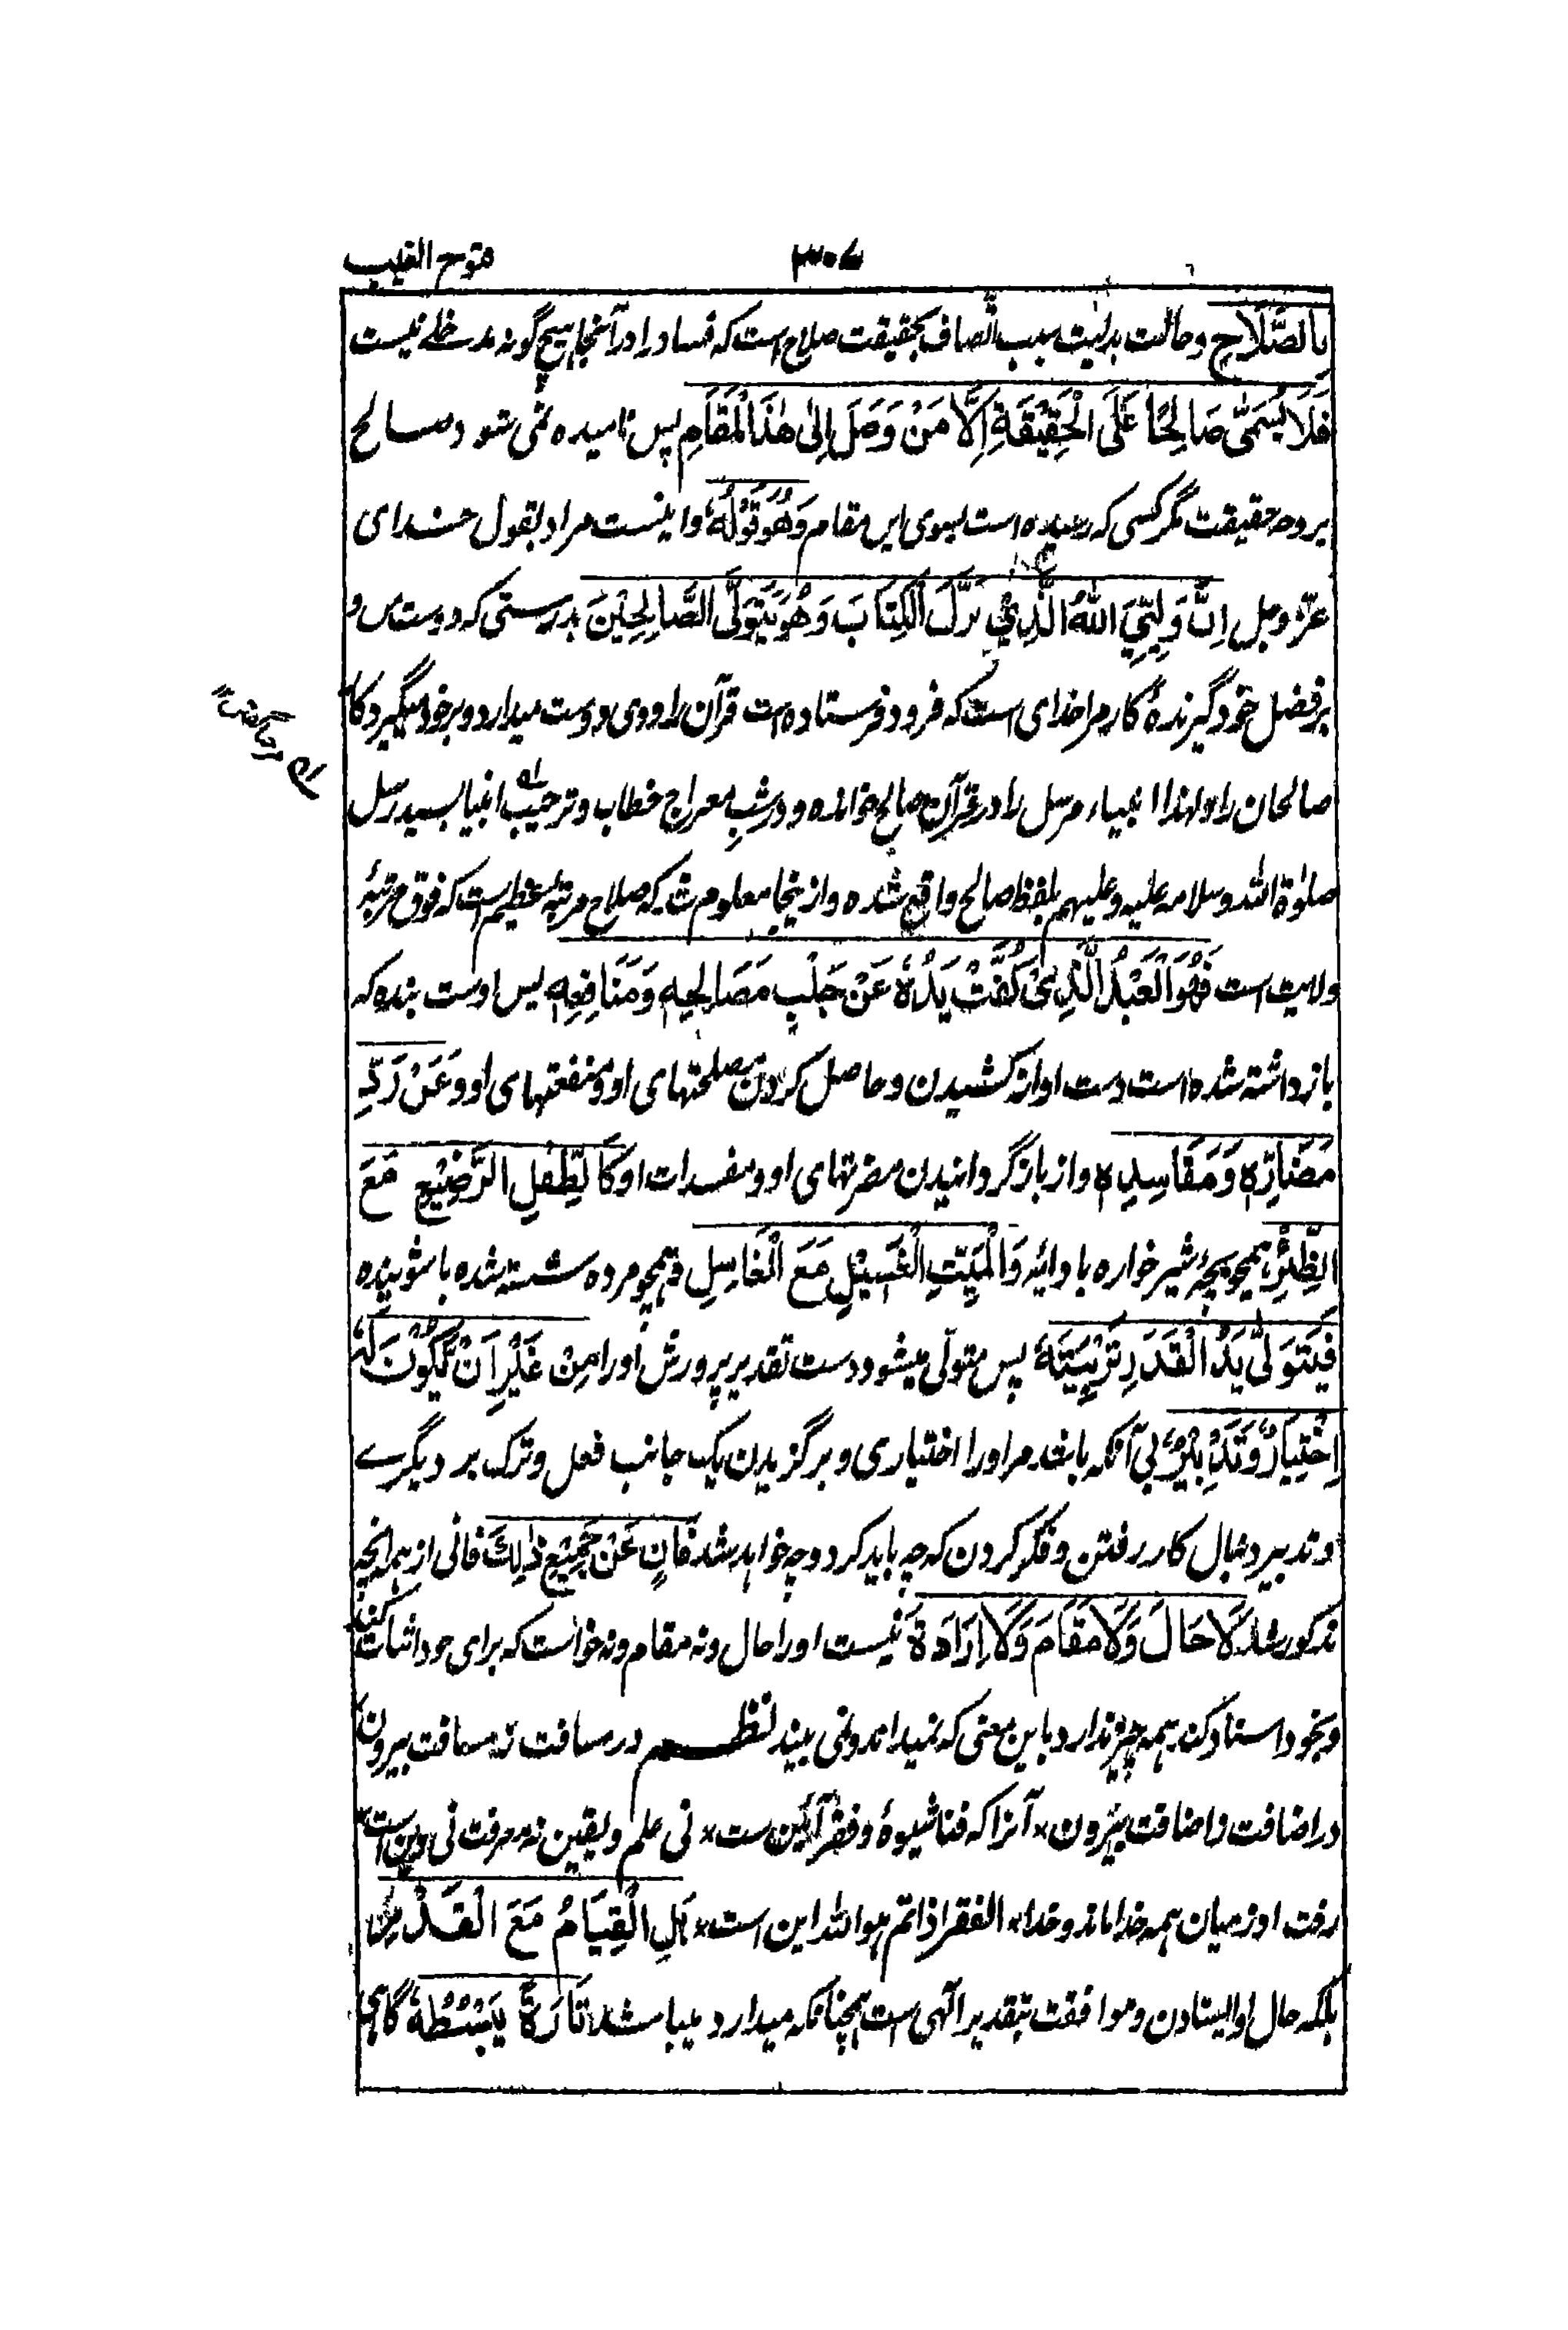 ۳۰۷ فتوح الغیب
بِالصَّلَاحِ وحالت بدلیت بسبب اتّصاف بحقیقت صلاح است که فساد را در آنجا هیچ گونه مدخلے نیست
فَلَا یُسَمّٰی صَالِحًا عَلَی الْحَقِیْقَةِ اِلَّا مَنْ وَصَلَ اِلٰی هٰذَا الْمَقَامِ پس نامیده نمی شود صالح
بر وجه حقیقت مگر کسی که رسیده است بسوی این مقام وَهُوَ قَوْلُهٗ و اینست مراد بقول خدای
عزّ وجل اِنَّ وَلِیِّیَ اللّٰهُ الَّذِیْ نَزَّلَ الْکِتَابَ وَهُوَ یَتَوَلَّی الصَّالِحِیْنَ بدرستی که دوست من و
بر فضل خود گیرندۀ کار مرا خدای است که فرود فرستاده است قرآن را و وی دوست میدارد و بر خود میگیرد کار
صالحان را و لهذا انبیاء مرسل را در قرآن صالح خوانده و در شبِ معراج خطاب و ترحیب انبیا بسید رسل
صلوٰة اللّٰه وسلامه علیه وعلیهم بلفظ صالح واقع شده و ازینجا معلوم شد که صلاح مرتبۂ عظیم است که فوق مرتبۂ
ولایت است فَهُوَ الْعَبْدُ الَّذِیْ کُفَّتْ یَدُهٗ عَنْ جَلْبِ مَصَالِحِهٖ وَمَنَافِعِهٖ پس اوست بنده که
بازداشته شده است دست او از کشیدن و حاصل کردن مصلحتهای او و منفعتهای او وَعَنْ رَدِّ
مَضَارِّهٖ وَمَفَاسِدِهٖ و از باز گردانیدن مضرتهای او و مفسدات او کَالطِّفْلِ الرَّضِیْعِ مَعَ
الظِّئْرِ همچو بچۂ شیر خواره با دائه وَالْمَیِّتِ الْغَسِیْلِ مَعَ الْغَاسِلِ و همچو مرده شسته شده با شوینده
فَیَتَوَلّٰی یَدُ الْقَدَرِ تَرْبِیَتَهٗ پس متولّی میشود دست تقدیر پرورش او را مِنْ غَیْرِ اَنْ یَّکُوْنَ لَهٗ
اِخْتِیَارٌ وَّتَدْبِیْرٌ بی آنکه باشد مر او را اختیاری و برگزیدن یک جانب فعل و ترک بر دیگرے
و تدبیر دنبال کار رفتن و فکر کردن که چه باید کرد و چه خواهد شد فَانٍ عَنْ جَمِیْعِ ذٰلِكَ فانی از همه آنچه
مذکور شد لَا حَالَ وَلَا مَقَامَ وَلَا اِرَادَةَ نیست او را حال و نه مقام و نه خواست که برای خود اثبات کند
و بخود اسناد کند همه چیز ندارد باین معنی که نمیداند و نمی بیند نظــم در مسافت نه مسافت بیرون
در اضافت و اضافت بیرون × آنرا که فنا شیوۂ و فقر آئین ست × نی علم و یقین نه معرفت نی دین است
رفت او ز میان همه خدا ماند و خدا × الفقر اذا تم هو اللّٰه این است × بَلِ الْقِیَامُ مَعَ الْقَدْرِ
بلکه حال او ایستادن و موافقت بتقدیر الٓهی است همچنانکه میدارد میباشد تَارَةً یَبْسُطُهٗ گاهی